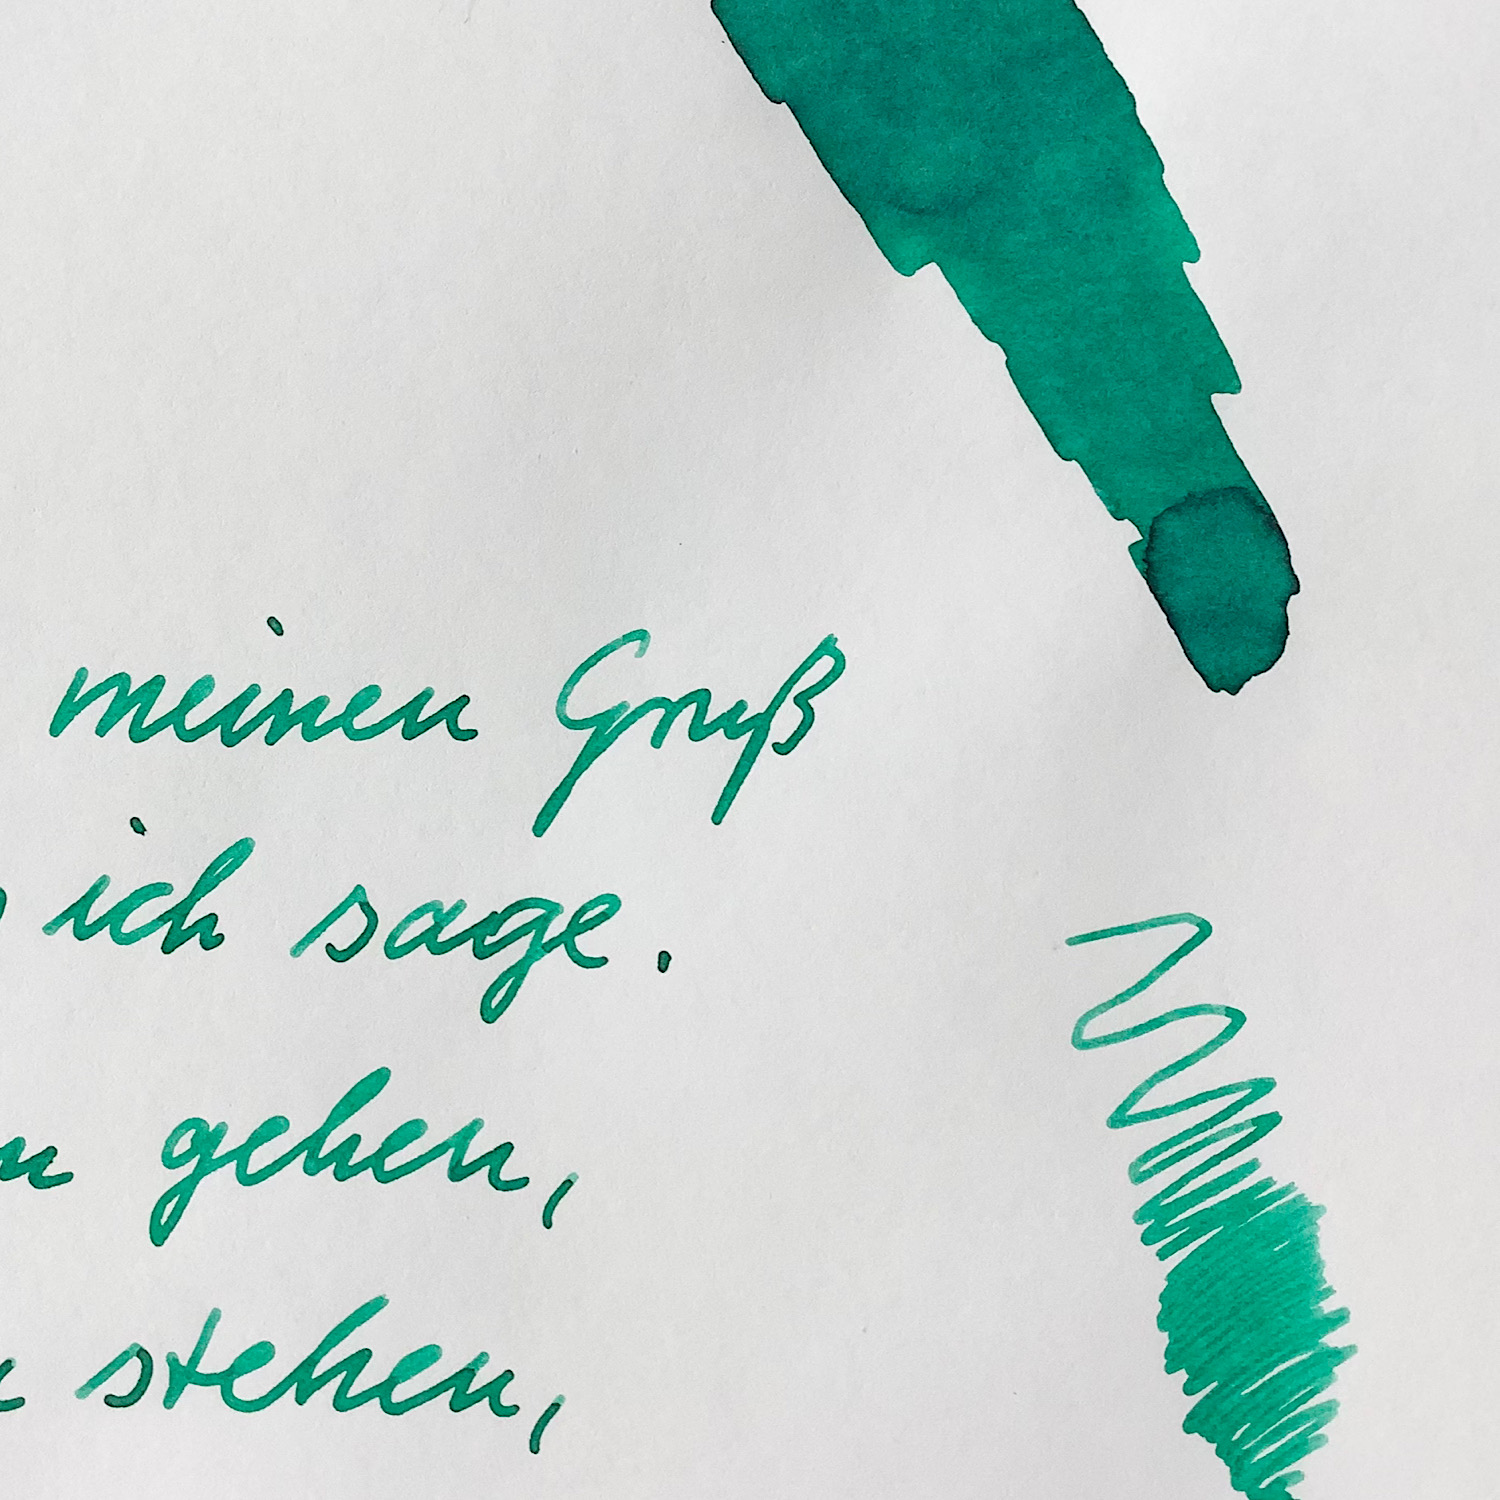 meinen Gruß
ich sage.
gehen,
stehen,